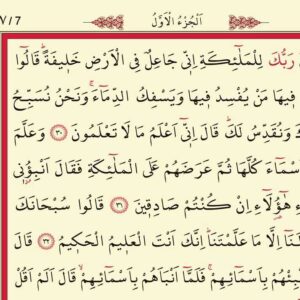 ٧/7 اَلْجُزْءُ الْاَوَّلُ
رَبُّكَ لِلْمَلٰٓئِكَةِ اِنّٖي جَاعِلٌ فِي الْاَرْضِ خَلٖيفَةًۜ قَالُٓوا
فٖيهَا مَنْ يُفْسِدُ فٖيهَا وَيَسْفِكُ الدِّمَٓاءَۚ وَنَحْنُ نُسَبِّحُ
وَنُقَدِّسُ لَكَۜ قَالَ اِنّٖٓي اَعْلَمُ مَا لَا تَعْلَمُونَ ﴿٣٠﴾ وَعَلَّمَ
كُلَّهَا ثُمَّ عَرَضَهُمْ عَلَى الْمَلٰٓئِكَةِ فَقَالَ اَنْبِؤُ۫نٖي
هٰٓؤُ۬لَٓاءِ اِنْ كُنْتُمْ صَادِقٖينَ ﴿٣١﴾ قَالُوا سُبْحَانَكَ
لَنَٓا اِلَّا مَا عَلَّمْتَنَاۜ اِنَّكَ اَنْتَ الْعَلٖيمُ الْحَكٖيمُ ﴿٣٢﴾
بِاَسْمَٓائِهِمْۚ فَلَمَّٓا اَنْبَاَهُمْ بِاَسْمَٓائِهِمْۙ قَالَ اَلَمْ اَقُلْ